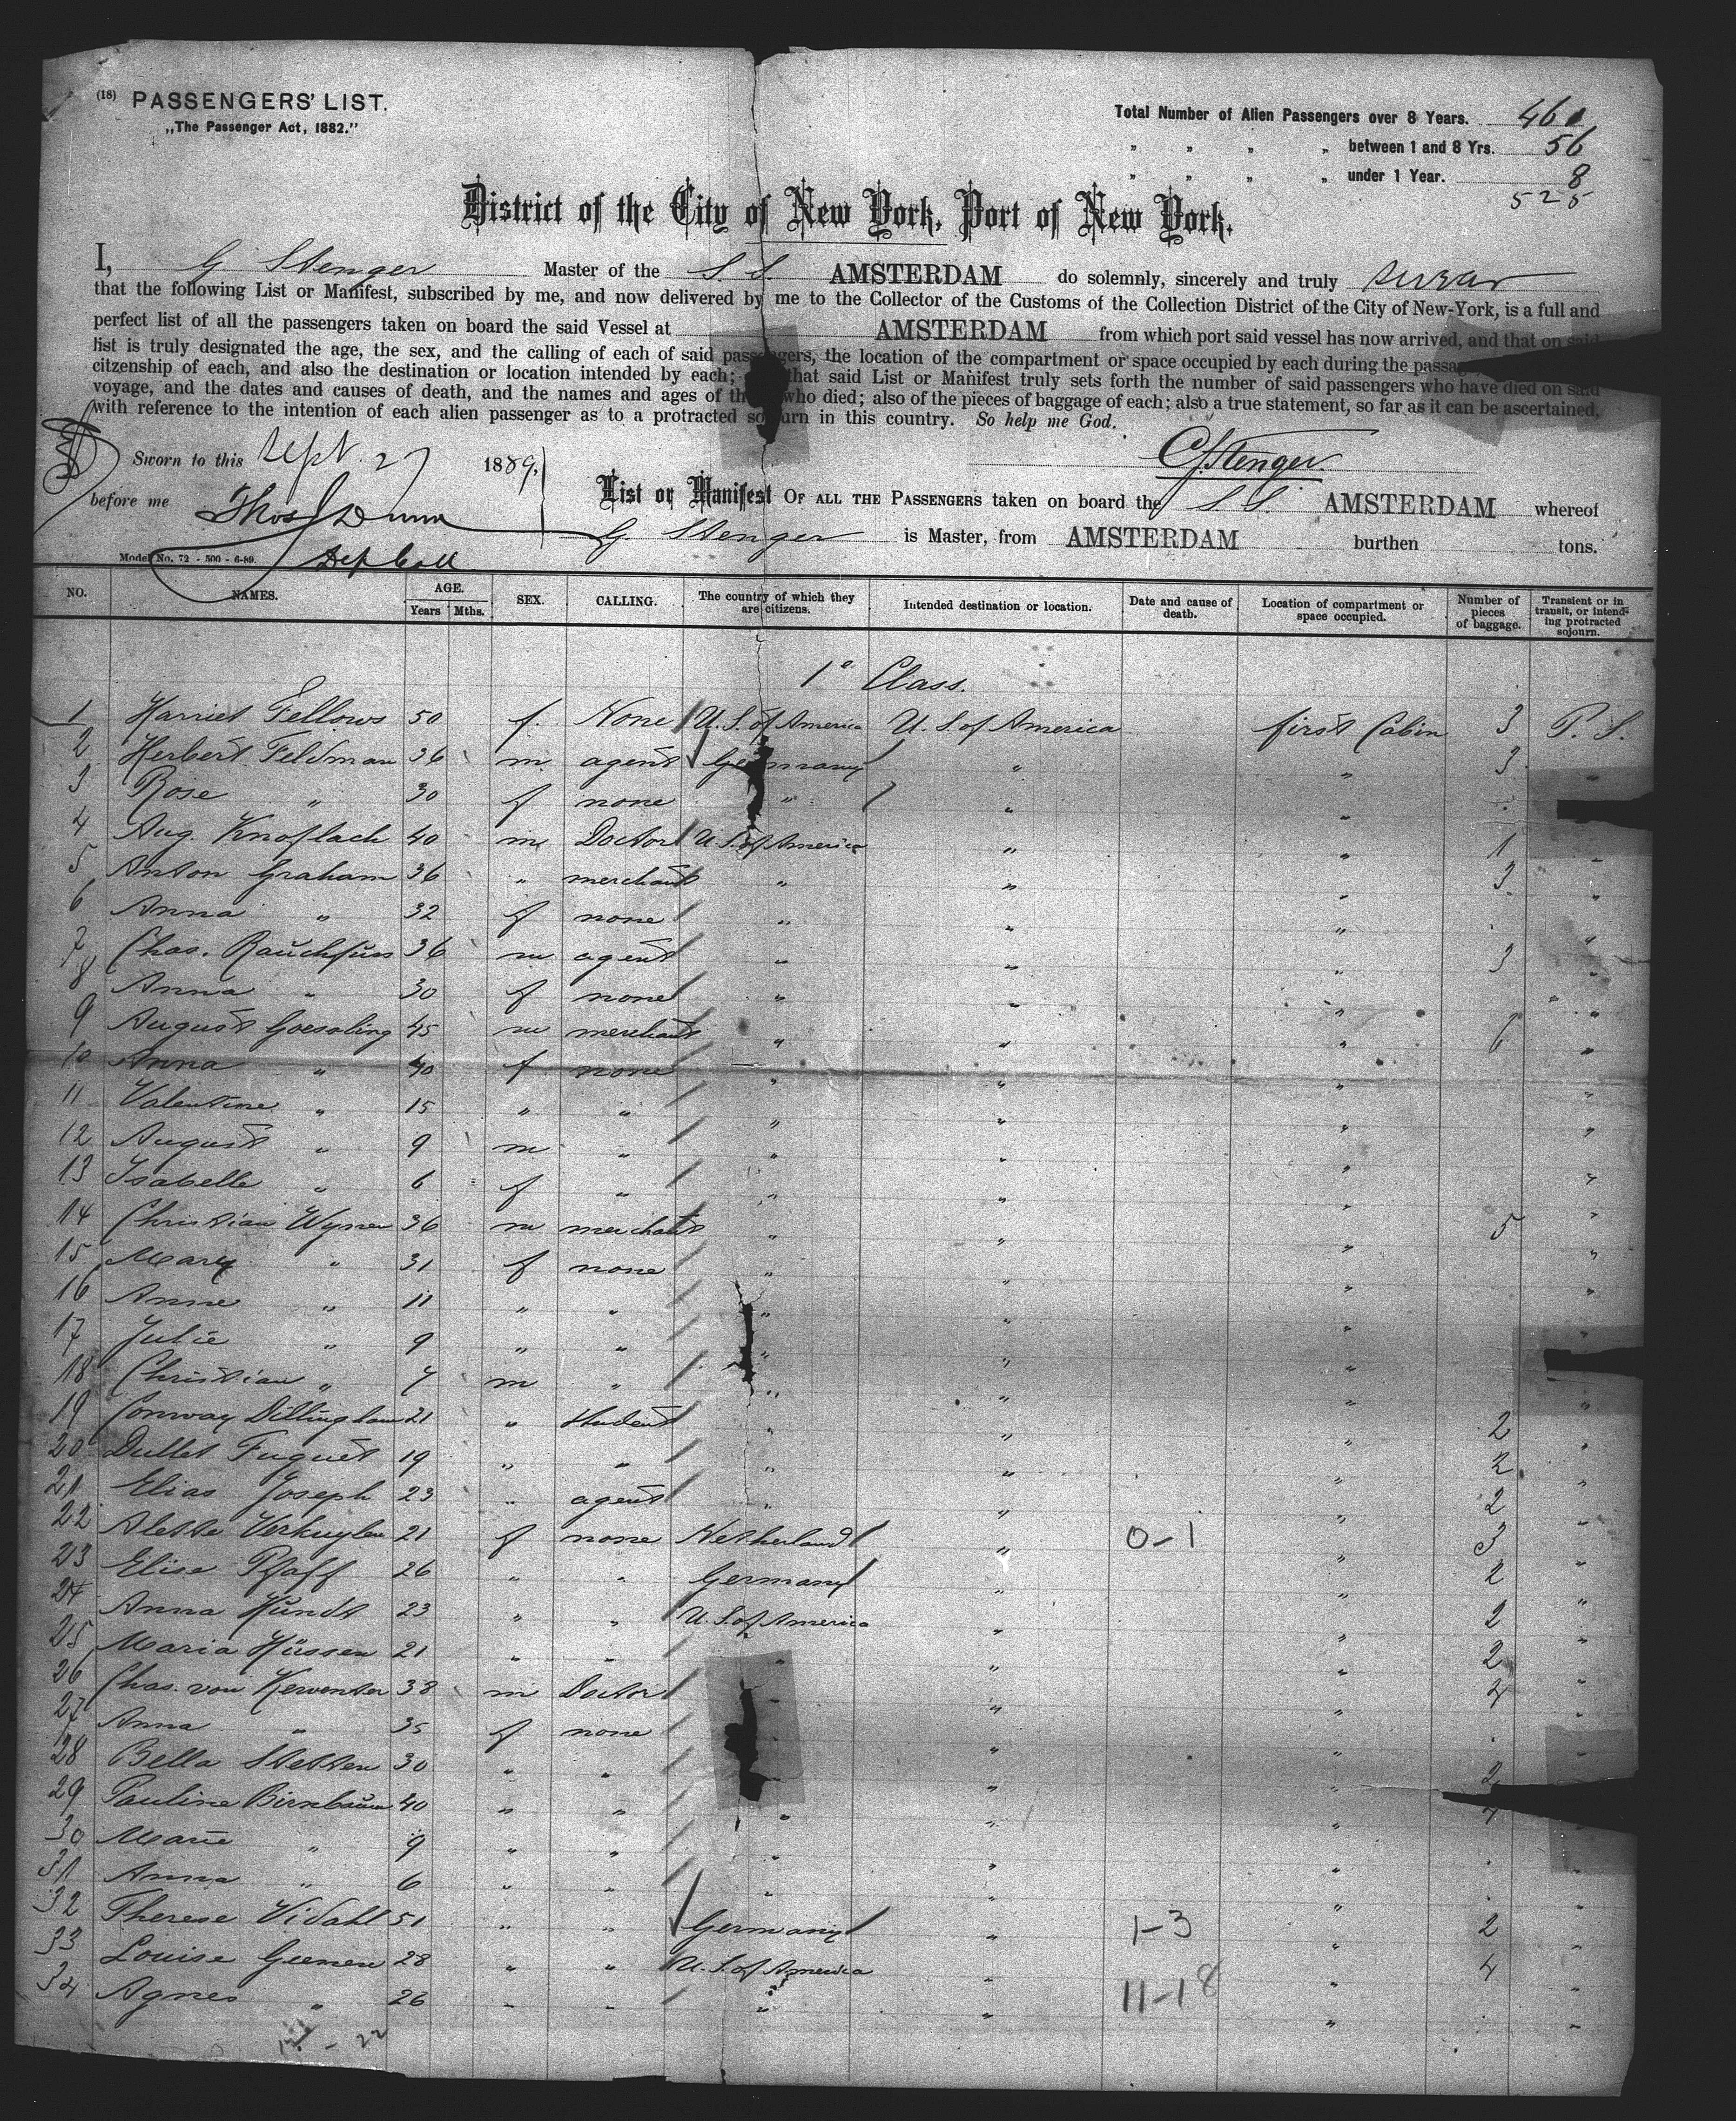 (18) PASSENGERS' LIST.
„The Passenger Act, 1882."
Total Number of Alien Passengers over 8 Years. 461
" " " " between 1 and 8 Yrs. 56
" " " " under 1 Year. 8
525
District of the City of New York, Port of New York.
I, G Stenger Master of the S. S. AMSTERDAM do solemnly, sincerely and truly swear
that the following List or Manifest, subscribed by me, and now delivered by me to the Collector of the Customs of the Collection District of the City of New-York, is a full and
perfect list of all the passengers taken on board the said Vessel at AMSTERDAM from which port said vessel has now arrived, and that on said
list is truly designated the age, the sex, and the calling of each of said passengers, the location of the compartment or space occupied by each during the
citzenship of each, and also the destination or location intended by each; that said List or Manifest truly sets forth the number of said passengers who have died on said
voyage, and the dates and causes of death, and the names and ages of who died; also of the pieces of baggage of each; also a true statement, so far as it can be ascertained,
with reference to the intention of each alien passenger as to a protracted sojourn in this country. So help me God.
Sworn to this Sept. 27 1889,
GStenger.
before me Thos J Dunn
Dep Coll
List or Manifest OF ALL THE PASSENGERS taken on board the S. S. AMSTERDAM whereof
G. Stenger is Master, from AMSTERDAM burthen tons.
Model No. 72 - 500 - 6-89.
NO. NAMES. AGE. Years Mths. SEX. CALLING. The country of which they are citizens. Intended destination or location. Date and cause of death. Location of compartment or space occupied. Number of pieces of baggage. Transient or in transit, or intending protracted sojourn.
1e Class.
1 Harriet Fellows 50 f. None U. S. of America U. S. of America first Cabin 3 P. S.
2 Herbert Feldman 36 m agent Germany " " 3 "
3 Rose " 30 f none " " "
4 Aug. Knoflach 40 m Doctor U. S. of America " " 1 "
5 Anton Graham 36 " merchant " " " 3 "
6 Anna " 32 f none " " " "
7 Chas. Rauchfuss 36 m agent " " " 3 "
8 Anna " 30 f none " " " "
9 August Goesling 45 m merchant " " " 6 "
10 Anna " 40 f none " " " "
11 Valentine " 15 " " " " " "
12 August " 9 m " " " " "
13 Isabelle " 6 f " " " " "
14 Christian Wynen 36 m merchant " " " 5 "
15 Mary " 31 f none " " " "
16 Anne " 11 " " " " " "
17 Julie " 9 " " " " " "
18 Christian " 7 m " " " " "
19 Conway Dillingham 21 " student " " " 2 "
20 Dullet Fuguet 19 " " " " " 2 "
21 Elias Joseph 23 " agent " " " 2 "
22 Alette Verkuylen 21 f none Netherland " 0-1 " 3 "
23 Elise Pfaff 26 " " Germany " " 2 "
24 Anna Hundt 23 " " U. S. of America " " 2 "
25 Maria Hüssen 21 " " " " " 2 "
26 Chas. von Kerventer 38 m Doctor " " " 4 "
27 Anna " 35 f none " " "
28 Bella Stetten 30 " " " " 2
29 Pauline Birnbaum 40 " " " " " 4 "
30 Marie " 9 " " " " "
31 Anna " 6 " " " " " "
32 Therese Vidahl 51 " " Germany " 1-3 " 2 "
33 Louise Geenen 28 " " U. S. of America " " 4 "
34 Agnes " 26 " " " " 11-18 " "